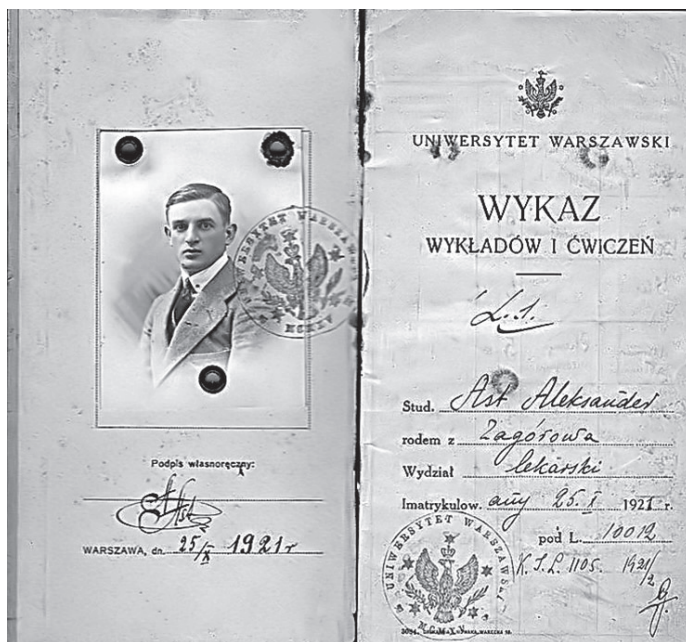 Podpis własnoręczny:
WARSZAWA, dn. 25/X 1921 r
UNIWERSYTET WARSZAWSKI
WYKAZ
WYKŁADÓW I ĆWICZEŃ
L. 1.
Stud. Ast Aleksander
rodem z Zagórowa
Wydział lekarski
Imatrykulow. any 25.I 1921 r.
pod L. 10012
K.S.L. 1105. 1921/2
UNIWERSYTET WARSZAWSKI